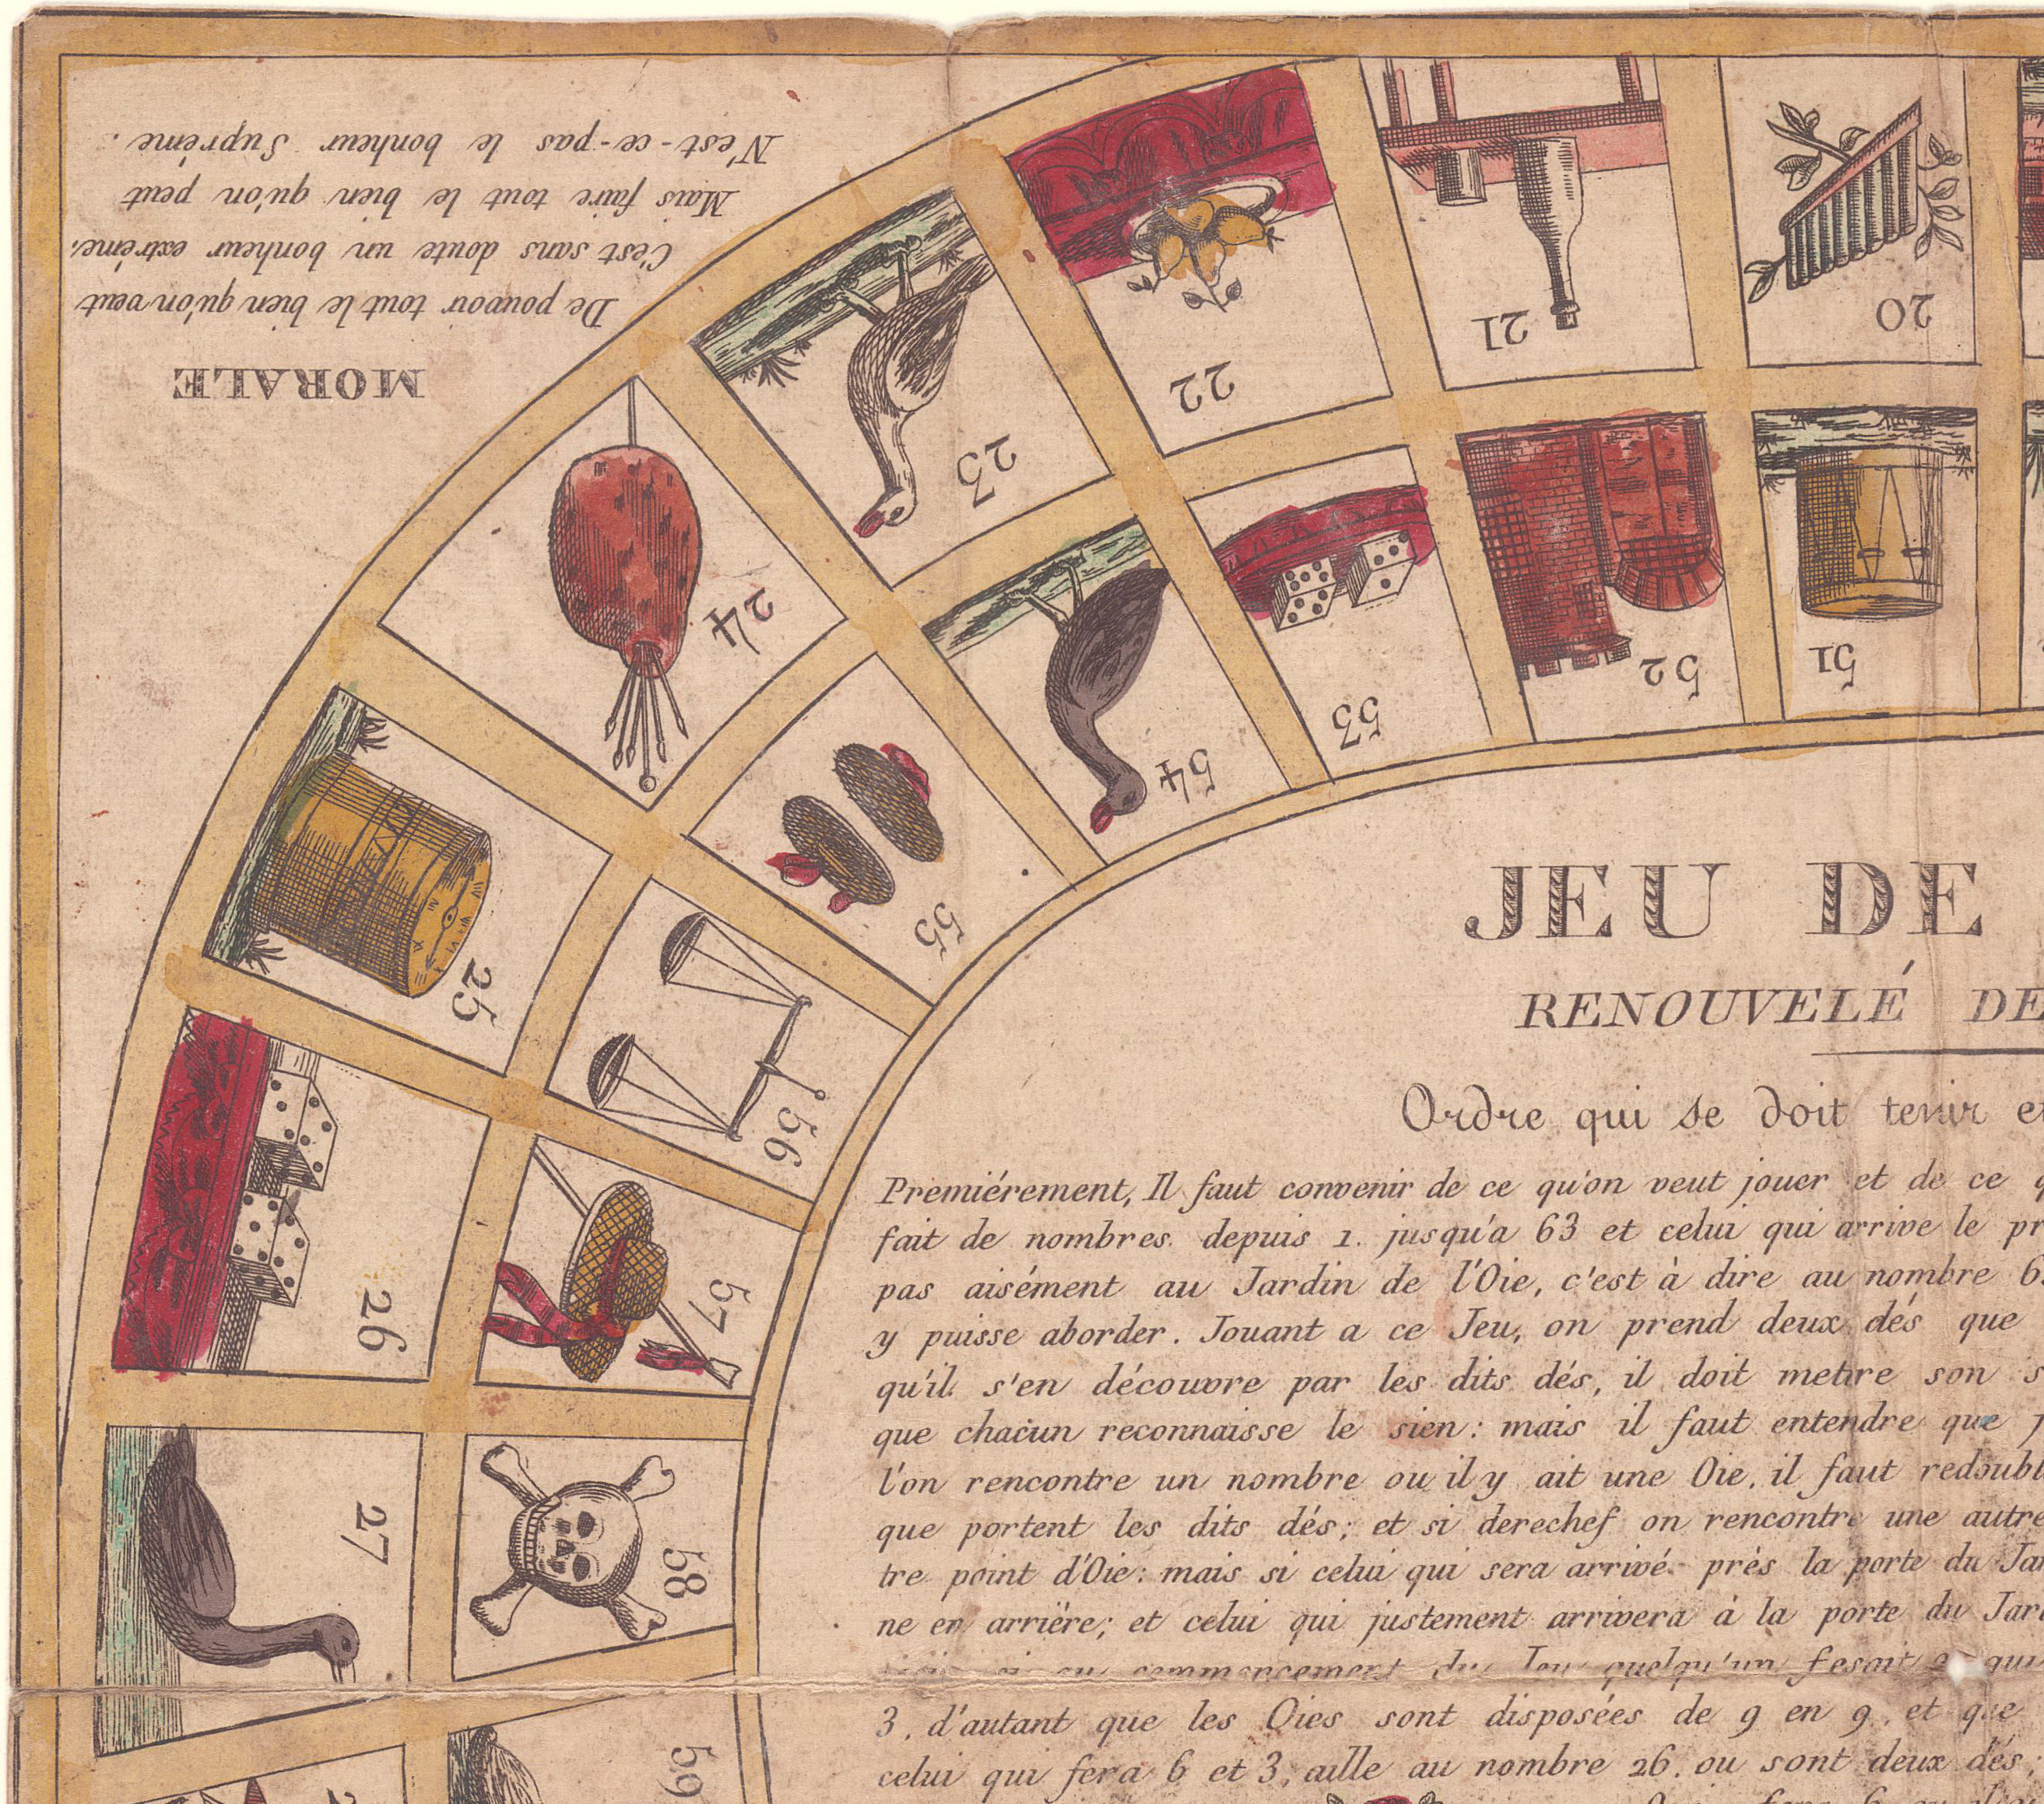 MORALE
De pouvoir tout le bien qu'on veut
C'est sans doute un bonheur extrème,
Mais faire tout le bien qu'on peut
N'est-ce-pas le bonheur Suprème.
20
21
22
23
24
25
26
27
51
52
53
54
55
56
57
58
59
JEU DE
RENOUVELÉ DE
Ordre qui se doit tenir et
Premiérement, Il faut convenir de ce qu'on veut jouer et de ce
fait de nombres depuis 1. jusqu'a 63 et celui qui arrive le
pas aisément au Jardin de l'Oie, c'est à dire au nombre
y puisse aborder. Jouant a ce Jeu, on prend deux dés que
qu'il s'en découvre par les dits dés, il doit mettre son
que chacun reconnaisse le sien: mais il faut entendre que
l'on rencontre un nombre ou il y ait une Oie, il faut
que portent les dits dés; et si derechef on rencontre une autre
tre point d'Oie: mais si celui qui sera arrivé près la porte du
ne en arrière; et celui qui justement arrivera à la porte du
commencement du Jeu quelqu'un fesait
3, d'autant que les Oies sont disposées de 9 en 9, et que
celui qui fera 6 et 3, aille au nombre 26. ou sont deux dés;